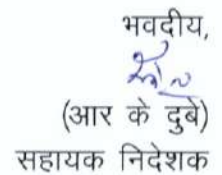 भवदीय,
(आर के दुबे)
सहायक निदेशक